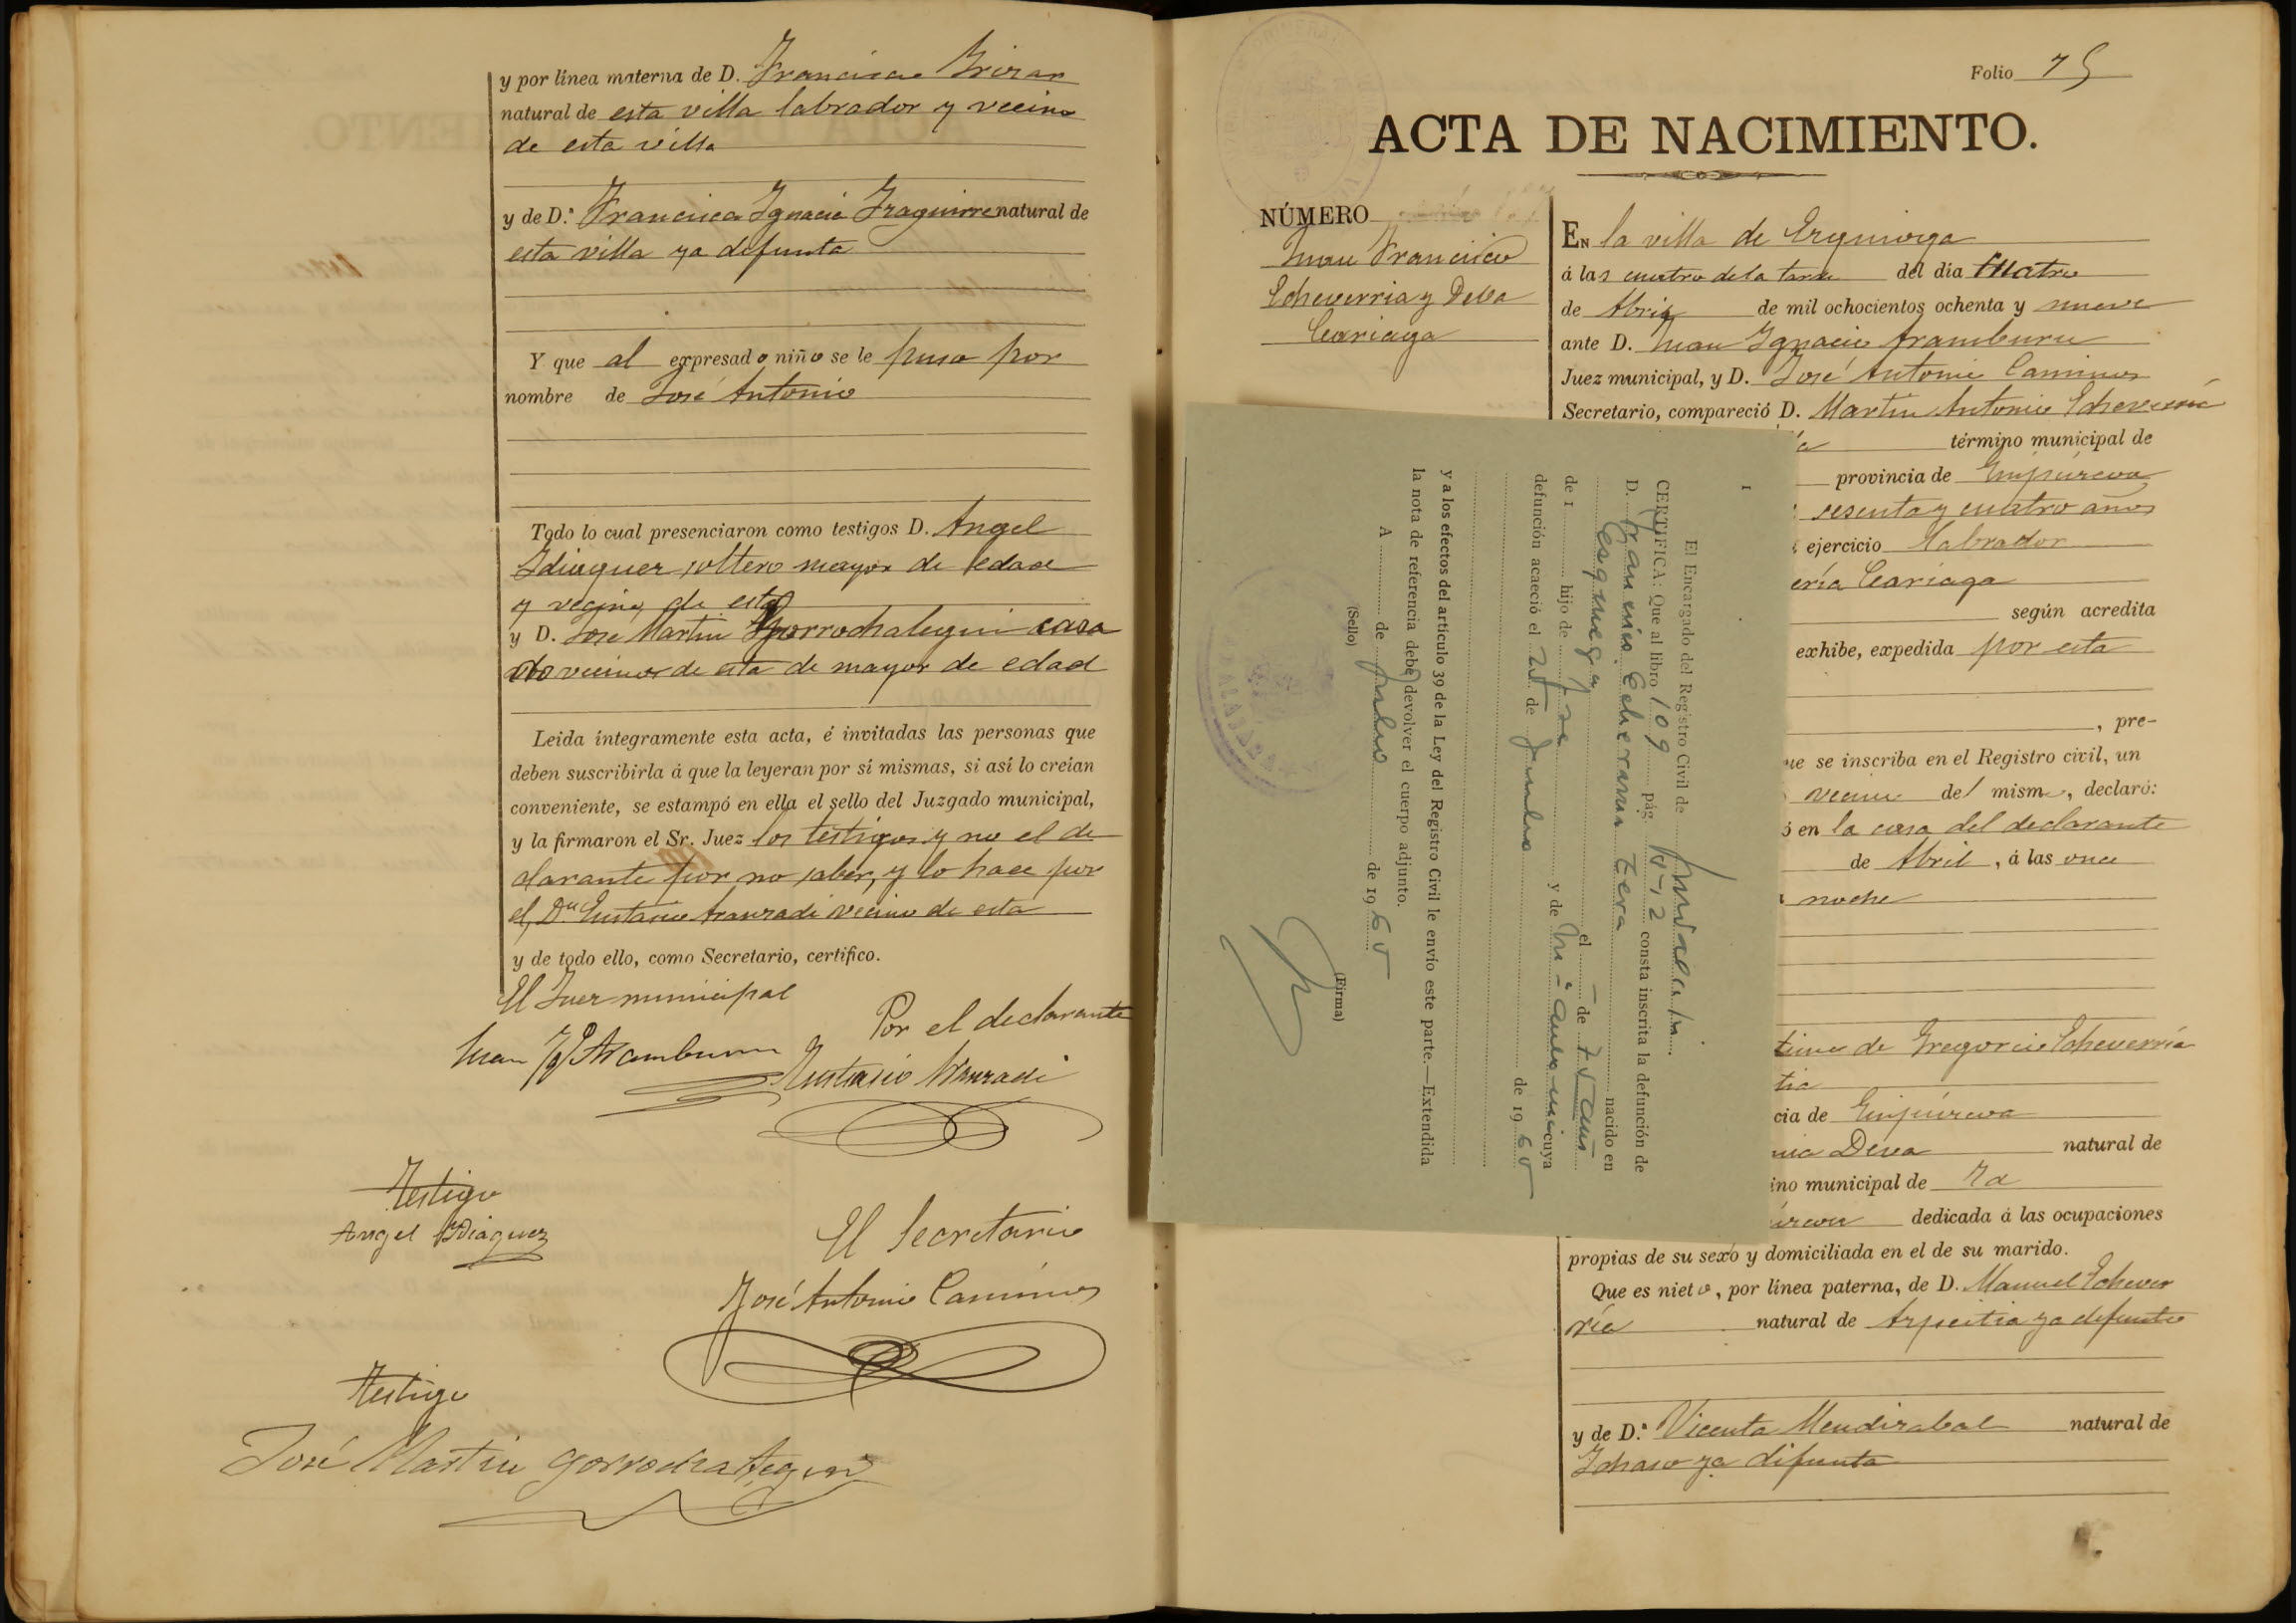 y por línea materna de D. Francisco Brizar
natural de esta villa labrador y vecino
de esta villa
y de D.ª Francisca Ignacia Izaguirre natural de
esta villa ya difunta
Y que al expresado niño se le puso por
nombre de José Antonio
Todo lo cual presenciaron como testigos D. Angel
Idiaquez soltero mayor de edad
y vecino de esta
y D. Jose Martin Gorrochategui casa
do vecinos de esta de mayor de edad
Leida íntegramente esta acta, é invitadas las personas que
deben suscribirla á que la leyeran por sí mismas, si así lo creían
conveniente, se estampó en ella el sello del Juzgado municipal,
y la firmaron el Sr. Juez los testigos y no el de
clarante por no saber, y lo hace por
el, Dn Eustasio Aranzadi vecino de esta
y de todo ello, como Secretario, certifico.
El Juez municipal
Por el declarante
Juan Ig Aramburu
Eustasio Aranzadi
Testigo
Angel Idiaquez
El Secretario
José Antonio Caminos
Testigo
José Martin Gorrochategui
Folio 75
ACTA DE NACIMIENTO.
NÚMERO
Juan Francisco
Echeverria y Deva
Cariaga
En la villa de Ezquioga
á las cuatro de la tarde del día cuatro
de Abril de mil ochocientos ochenta y nueve
ante D. Juan Ignacio Aramburu
Juez municipal, y D. José Antonio Caminos
Secretario, compareció D. Martin Antonio Echeverría
término municipal de
provincia de Guipúzcoa
sesenta y cuatro años
ejercicio labrador
ería Cariaga
según acredita
exhibe, expedida por esta
, pre-
ue se inscriba en el Registro civil, un
vecino del mismo, declaró:
ó en la casa del declarante
de Abril, á las once
noche
timo de Gregorio Echeverría
tia
cia de Guipúzcoa
nia Deva natural de
ino municipal de Za
úzcoa dedicada á las ocupaciones
propias de su sexo y domiciliada en el de su marido.
Que es nieto, por línea paterna, de D. Manuel Echever
ría natural de Azpeitia ya difunto
y de D.ª Vicenta Mendizabal natural de
Ichaso ya difunta
El Encargado del Registro Civil de
CERTIFICA: Que al libro 109 pág. consta inscrita la defunción de
D. Francisco Echeverria nacido en
Esquioga el - de
de 1 hijo de José y de cuya
defunción acaeció el de Junio de 1965
y a los efectos del artículo 39 de la Ley del Registro Civil le envío este parte.—Extendida
la nota de referencia debe devolver el cuerpo adjunto.
A de Julio de 1965
(Sello)
(Firma)